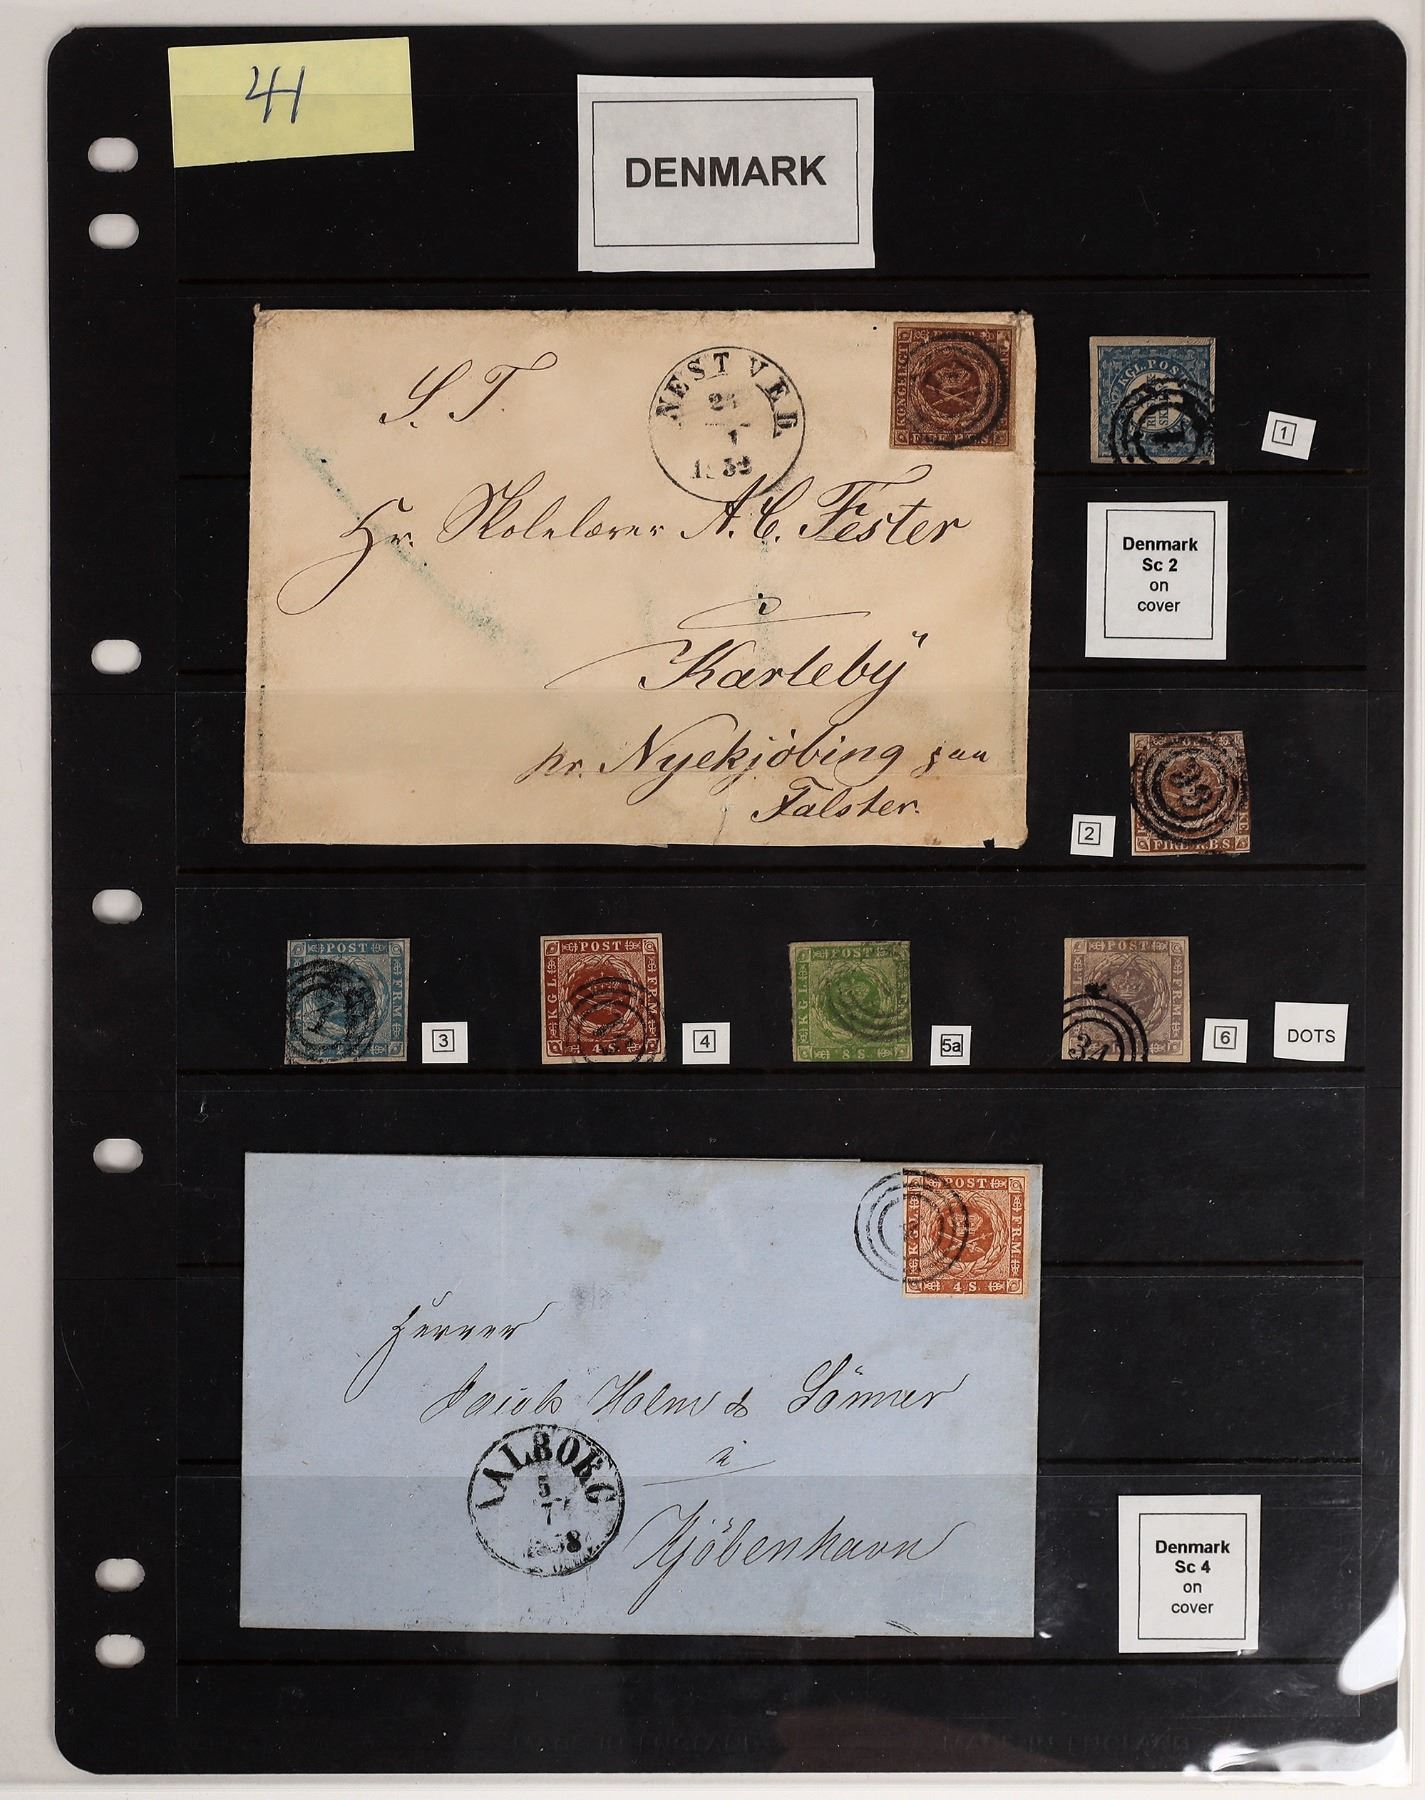 41
DENMARK
S. T.
NESTVED
1
KONGELIGT
FIRE R.B.S.
KGL. POST
1
1
Denmark
Sc 2
on
cover
Hr. Skolelærer A. C. Fester
i
Karleby
pr. Nyekjöbing paa
Falster.
2
FIRE R.B.S.
POST
F.R.M.
1
3
POST
K G L
F.R.M.
4 S.
4
POST
K G L
8 S
5a
POST
K G L
F.R.M
34
6
DOTS
POST
KGL
F.R.M.
4 S.
Herrer
Jacob Holm & Sönner
i
Kjöbenhavn
AALBORG
5
7
1858
Denmark
Sc 4
on
cover